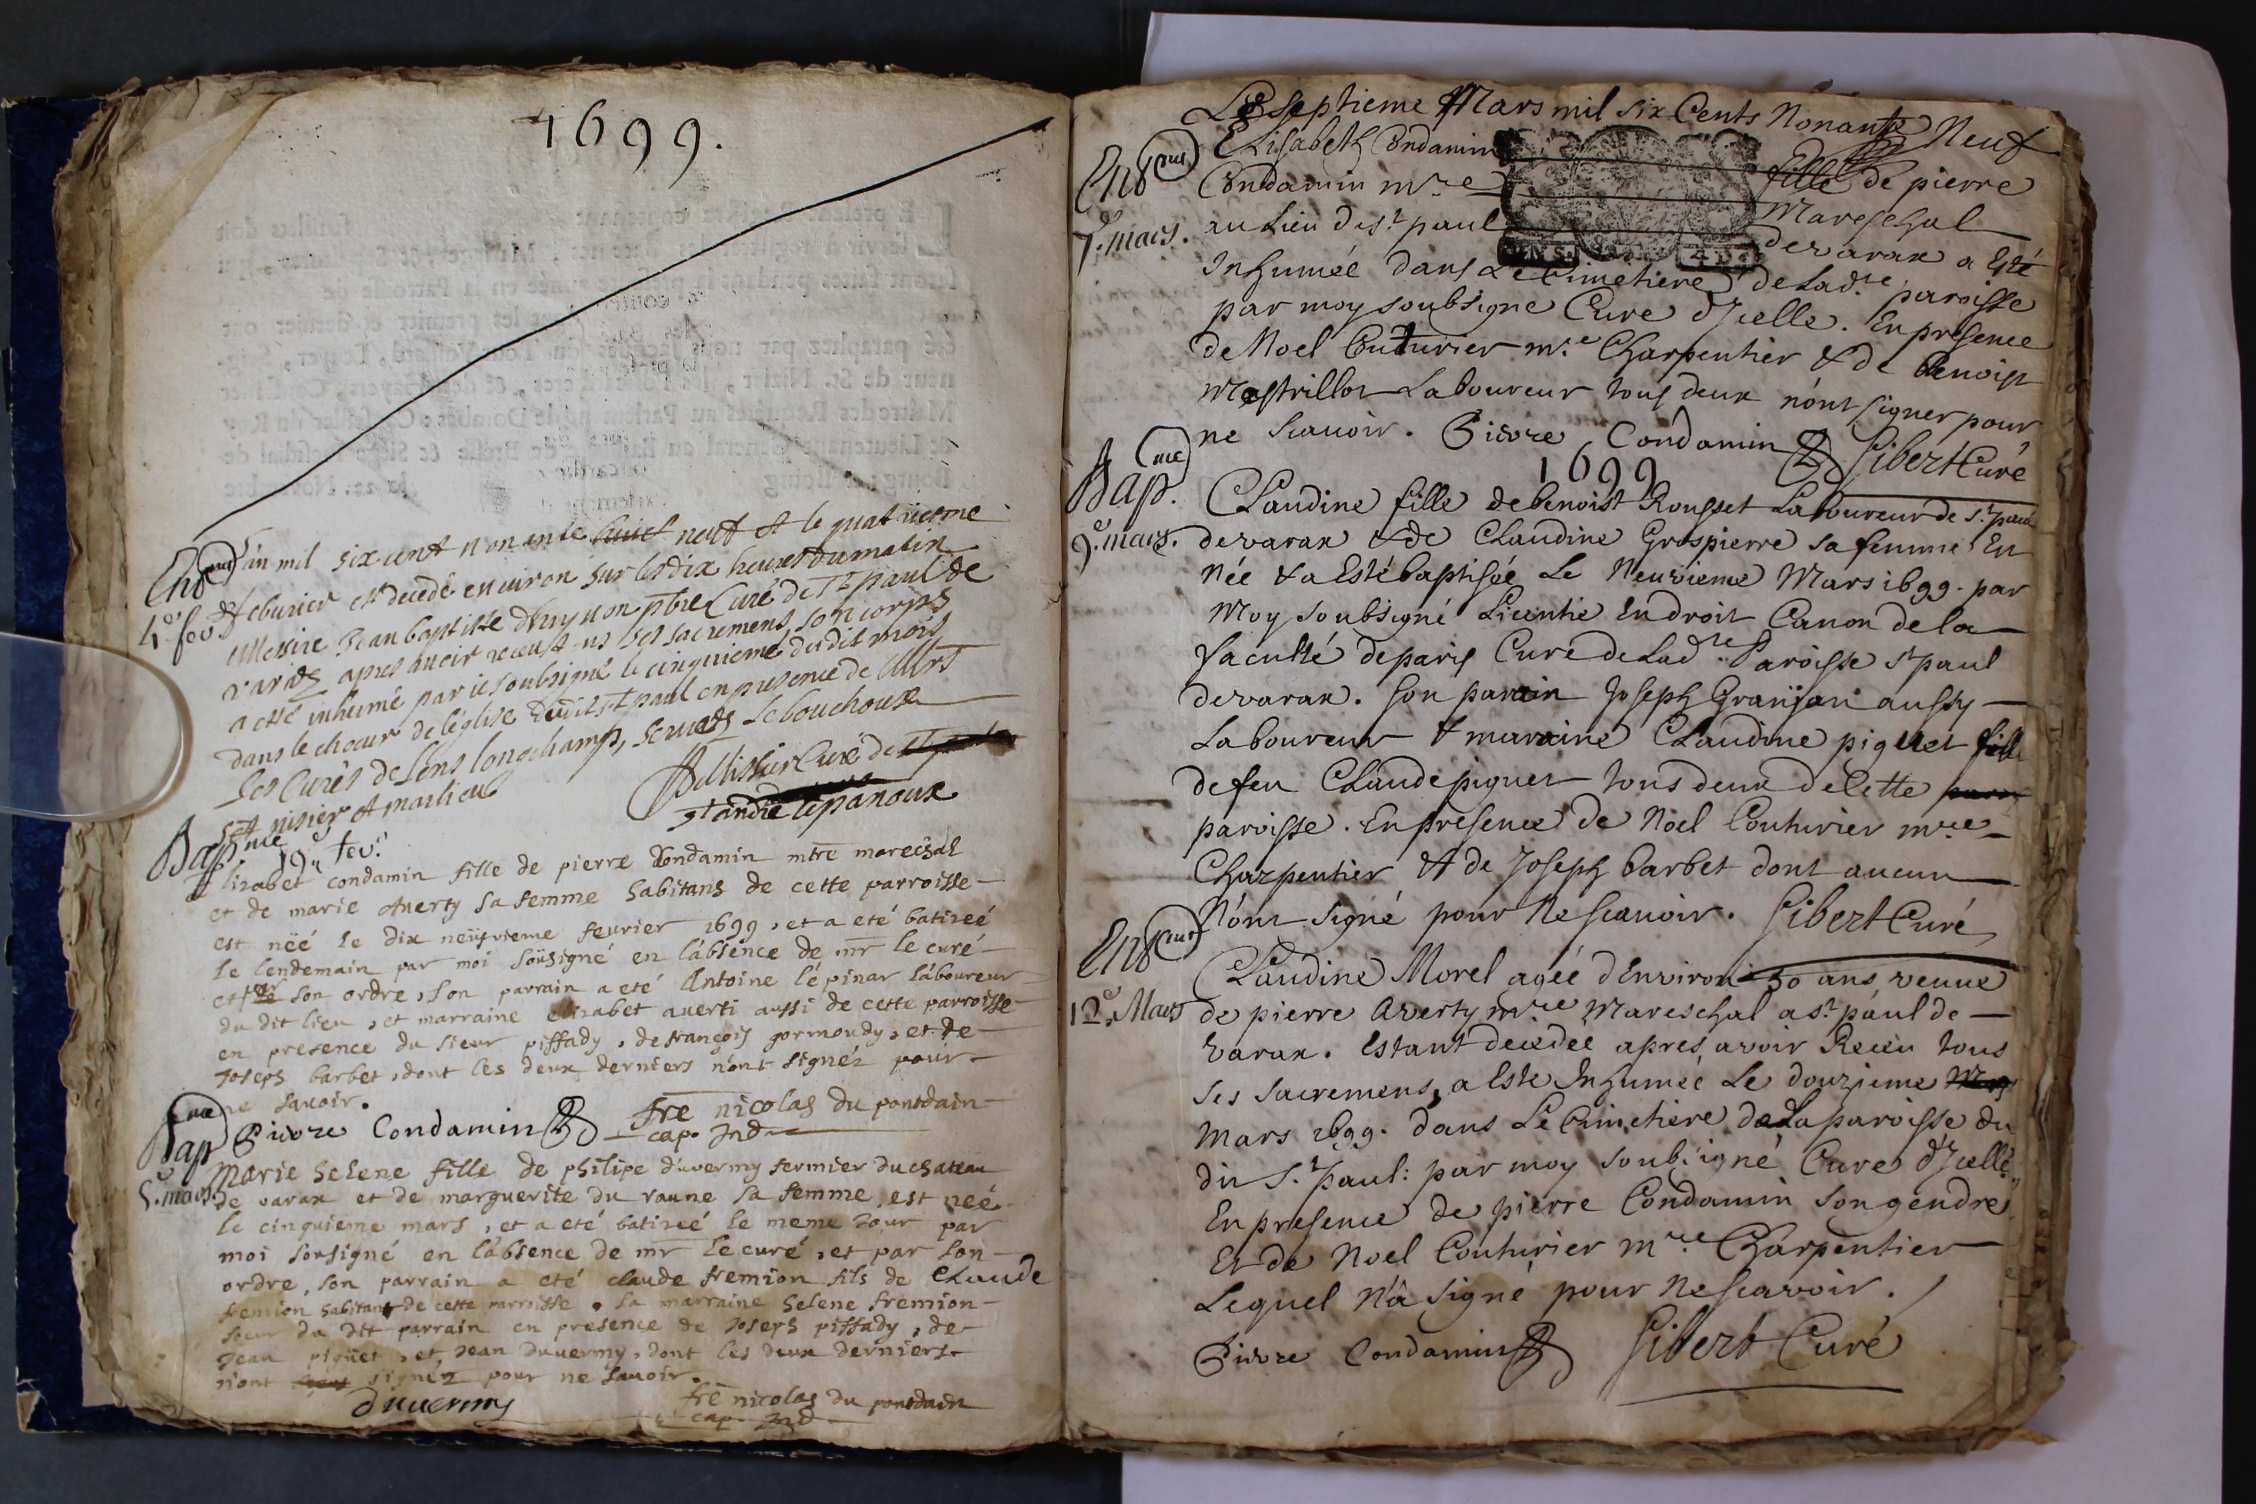 1699.
Ent.ment
L'an mil six cent nonante huict neuf et le quatrieme
4.e fev.er
feburier est decedé environ sur les dix heures du matin
Messire Jean baptiste druynon pbre Curé de St paul de
varax apres avoir receust us ses sacremens, son corps
a esté inhumé par ie soubsigné le cinquieme dudit mois
dans le choeur de l'église dudit St paul en presence de Mrs
Les Curés de Lens Longchamp, Servas Lebouchoux
St nisier et marlieu
Curé de
St andré lepanoux
Bap.me
19.e fev.r
Elizabet condamin fille de pierre Condamin mtre marechal
et de marie Averty sa femme habitans de cette parroisse
est néé le dix neufvieme fevrier 1699, et a eté batizeé
le lendemain par moi sousigné en l'absence de mr le curé
et par son ordre, son parrain a eté Antoine l'épinar laboureur
du dit lieu, et marraine elizabet averti aussi de cette parroisse
en presence du sieur piffady, de françois gormondy, et de
Joseph barbet, dont les deux derniers n'ont signéz pour
ne savoir.
Pierre Condamin
fre nicolas du pontdain
cap. Ind
Bap.me
5.e mars.
Marie helene fille de philipe duvermy fermier du chateau
de varax et de marguerite du raune sa femme, est neé
le cinquieme mars, et a eté batizeé le meme Jour par
moi sousigné en l'absence de mr le curé, et par son
ordre, son parrain a eté claude fremion fils de Claude
fremion habitant de cette parroisse. sa marraine helene fremion
soeur du dit parrain en presence de Joseph piffady, de
Jean piguet, et Jean Duvermy, dont les deux derniers
n'ont signéz pour ne savoir.
duvermy
fre nicolas du pontdain
cap. Ind
Le septieme Mars mil six Cents Nonante Neuf
Ent.ment
7.e mars.
Elisabeth Condamin fille de pierre
Condamin m.re Mareschal
au Lieu de st paul de varax a Esté
Inhumée dans Le Cimetiere de Lad.te paroisse
par moy soubsigne Cure d'Icelle. En presence
de Noel Cuturier m.re Charpentier & de Benoist
Mestrillot Laboureur tous deux n'ont signer pour
ne scavoir. Pierre Condamin Gibert Curé
1699
Bap.me
9.e mars.
Claudine fille de benoist Rousset Laboureur de st paul
de varax & de Claudine Grospierre sa femme Est
Née & a Esté baptisée Le Neuvieme Mars 1699. par
Moy soubsigné Licentié En droit Canon de la
faculté de paris Curé de Lad.te Paroisse st paul
de varax. son parain Joseph Granjan aussy
Laboureur & maraine Claudine piguet fille
de feu Claude piguet tous deux de Cette
paroisse. En presence de Noel Couturier m.re
Charpentier & de Joseph barbet dont aucun
N'ont signé pour Ne scavoir. Gibert Curé
Ent.ment
12.e Mars
Claudine Morel agée d'Environ 50 ans veuve
de pierre Averty m.re Mareschal a st paul de
varax. Estant decedée apres avoir Receu tous
ses sacremens, a Esté Inhumée Le douzieme
Mars 1699. dans Le Cimetiere de La paroisse du
dit St Paul: par moy soubsigné Curé d'Icelle
En presence de pierre Condamin son gendre
Et de Noel Couturier m.re Charpentier
Lequel N'a signé pour Ne scavoir.
Pierre Condamin Gibert Curé